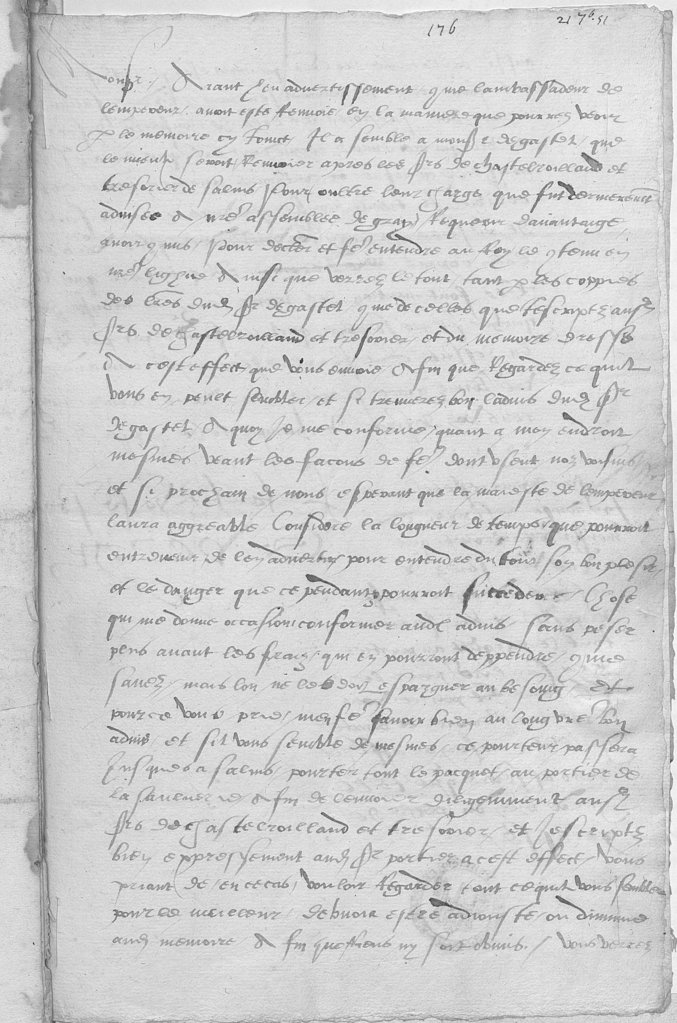 176
217b. 51
Monsr. Aiant heu advertissement, que lambassadeur de
lempereur avoit este Renvoie en la maniere que pourrez veoir
p le memoire cy Joinct, Il a semble a monsr degastel, que
le mieulx seroit Renvoier apres les srs de chastelroilland et
tresorier de salins pour oultre leur charge que fut dernierement
advisee a nre assemblee de gray Requerir davantaige
pour declairer et fe entendre au Roy le contenu en
que verrez le tout tant p les coppies
des lres dudt sr degastel que de celles que Jescriptz ausd
srs de chastelroilland et tresorier, et du memoire dresse
A cest effect que vous envoie Affin que Regardez ce quil
vous en peult sembler, et si treuverez bon ladvis dudt sr
degastel, A quoy Je me conforme quant a mon endroit
mesmes veant les facons de fe dont usent noz voisins
et si prochain de nous esperant que la maieste de lempereur
laura aggreable Considere la longueur de temps que pourroit
entrevenir de len advertir pour entendre du tout son bon plesir
et le danger que ce pendant pourroit succeder, Chose
qui me donne occasion conformer audt advis sans peser
plus avant les fraiz qui en pourront deppendre, comme
savez, mais lon ne les doit espargner au besoing, et
pour ce vous prie, men fe savoir bien au long vre bon
advis, et sil vous semble de mesmes, ce pourteur passera
Jusques a salins, pourter tout le pacquet au portier de
la saulnerie affin de lenvoier diligemment ausd
srs de chastelroilland et tresorier, et Jescriptz
bien expressement audt sr portier a cest effect, vous
priant de, en ce cas, vouloir Regarder tout ce quil vous semblera
pour le meilleur, debvoir estre adiouste, ou diminue
audt memoire Affin que Riens ny soit obmis. / vous verrez